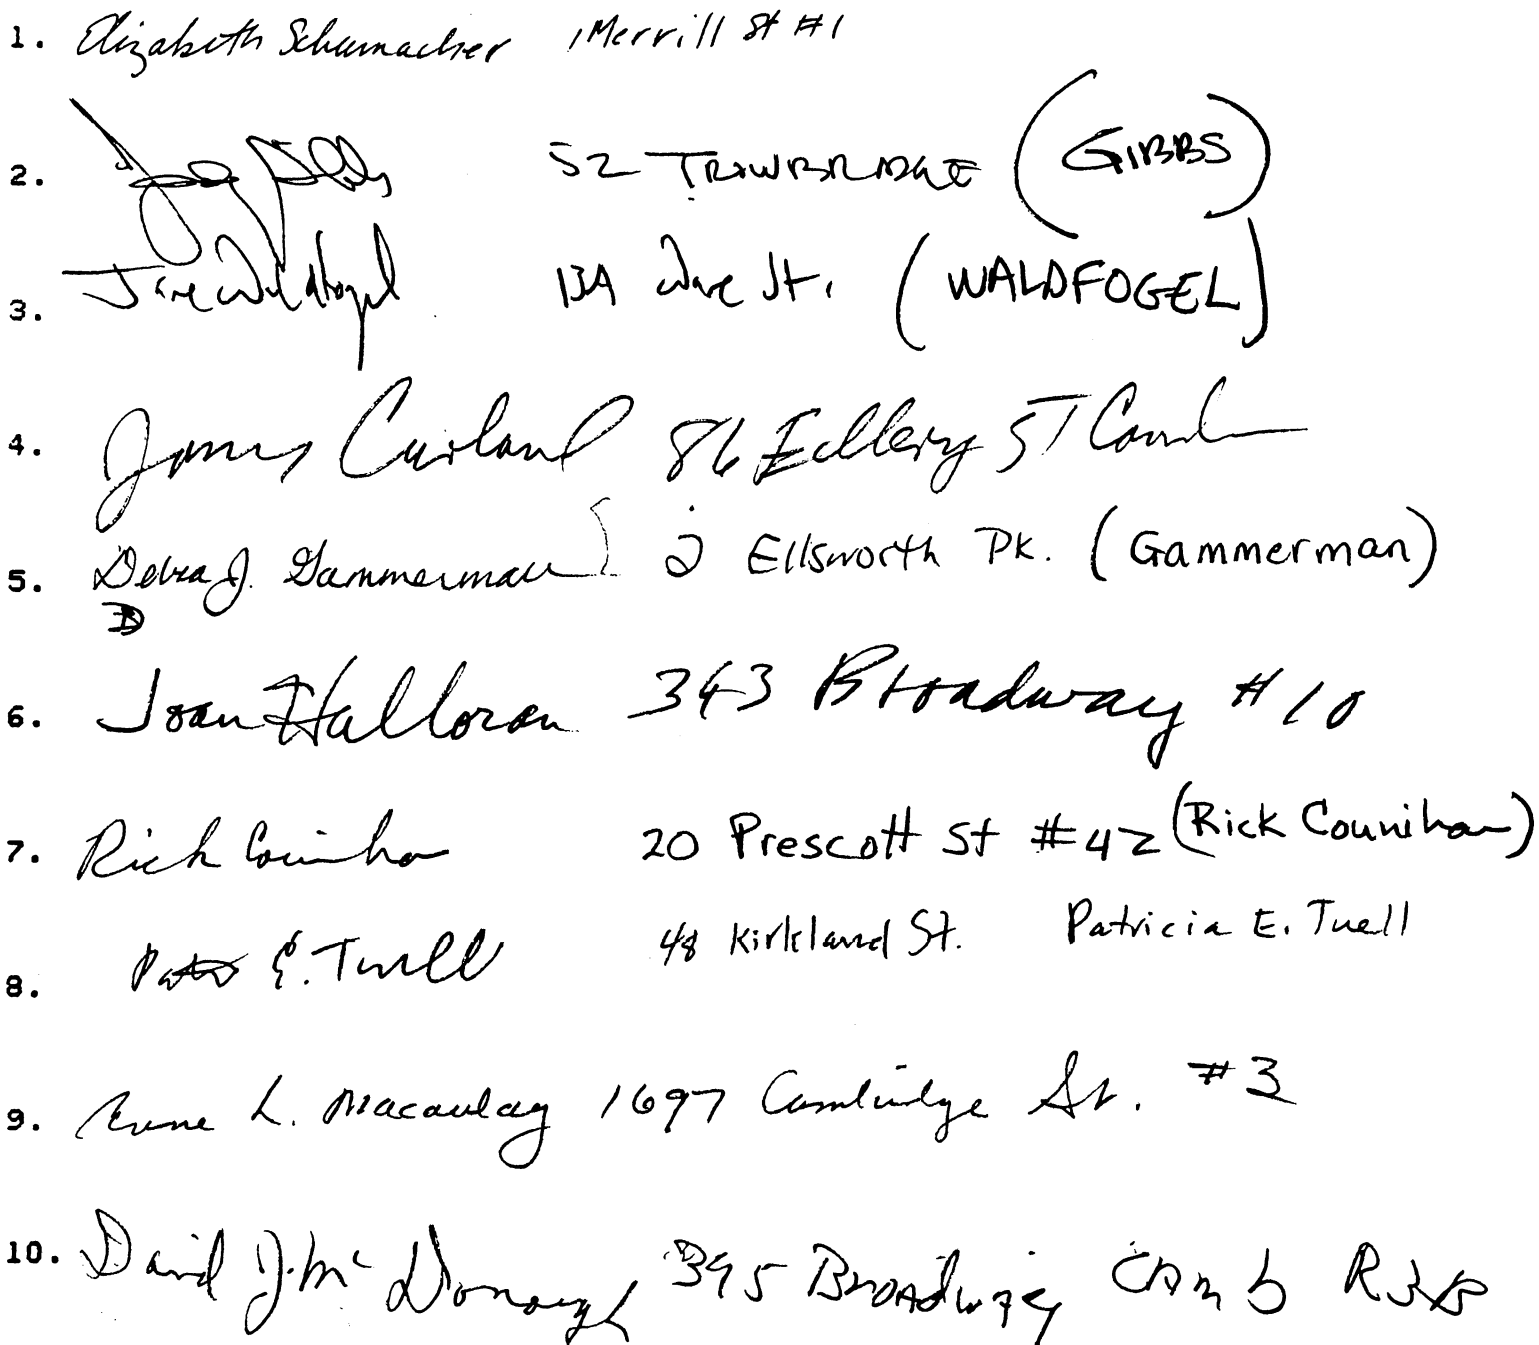 1. Elizabeth Schumacher 1 Merrill St #1
2. 52 TROWBRIDGE (GIBBS)
3. Jane Waldfogel 13A Ware St. (WALDFOGEL)
4. James Curland 86 Ellery ST Camb
5. Debra J. Gammerman 2 Ellsworth Pk. (Gammerman)
6. Joan Halloran 343 Broadway #10
7. Rick Counihan 20 Prescott St #42 (Rick Counihan)
8. E. Tuell 48 Kirkland St. Patricia E. Tuell
9. Anne L. Macaulay 1697 Cambridge St. #3
10. David J. Mc Donough 395 Broadway Camb